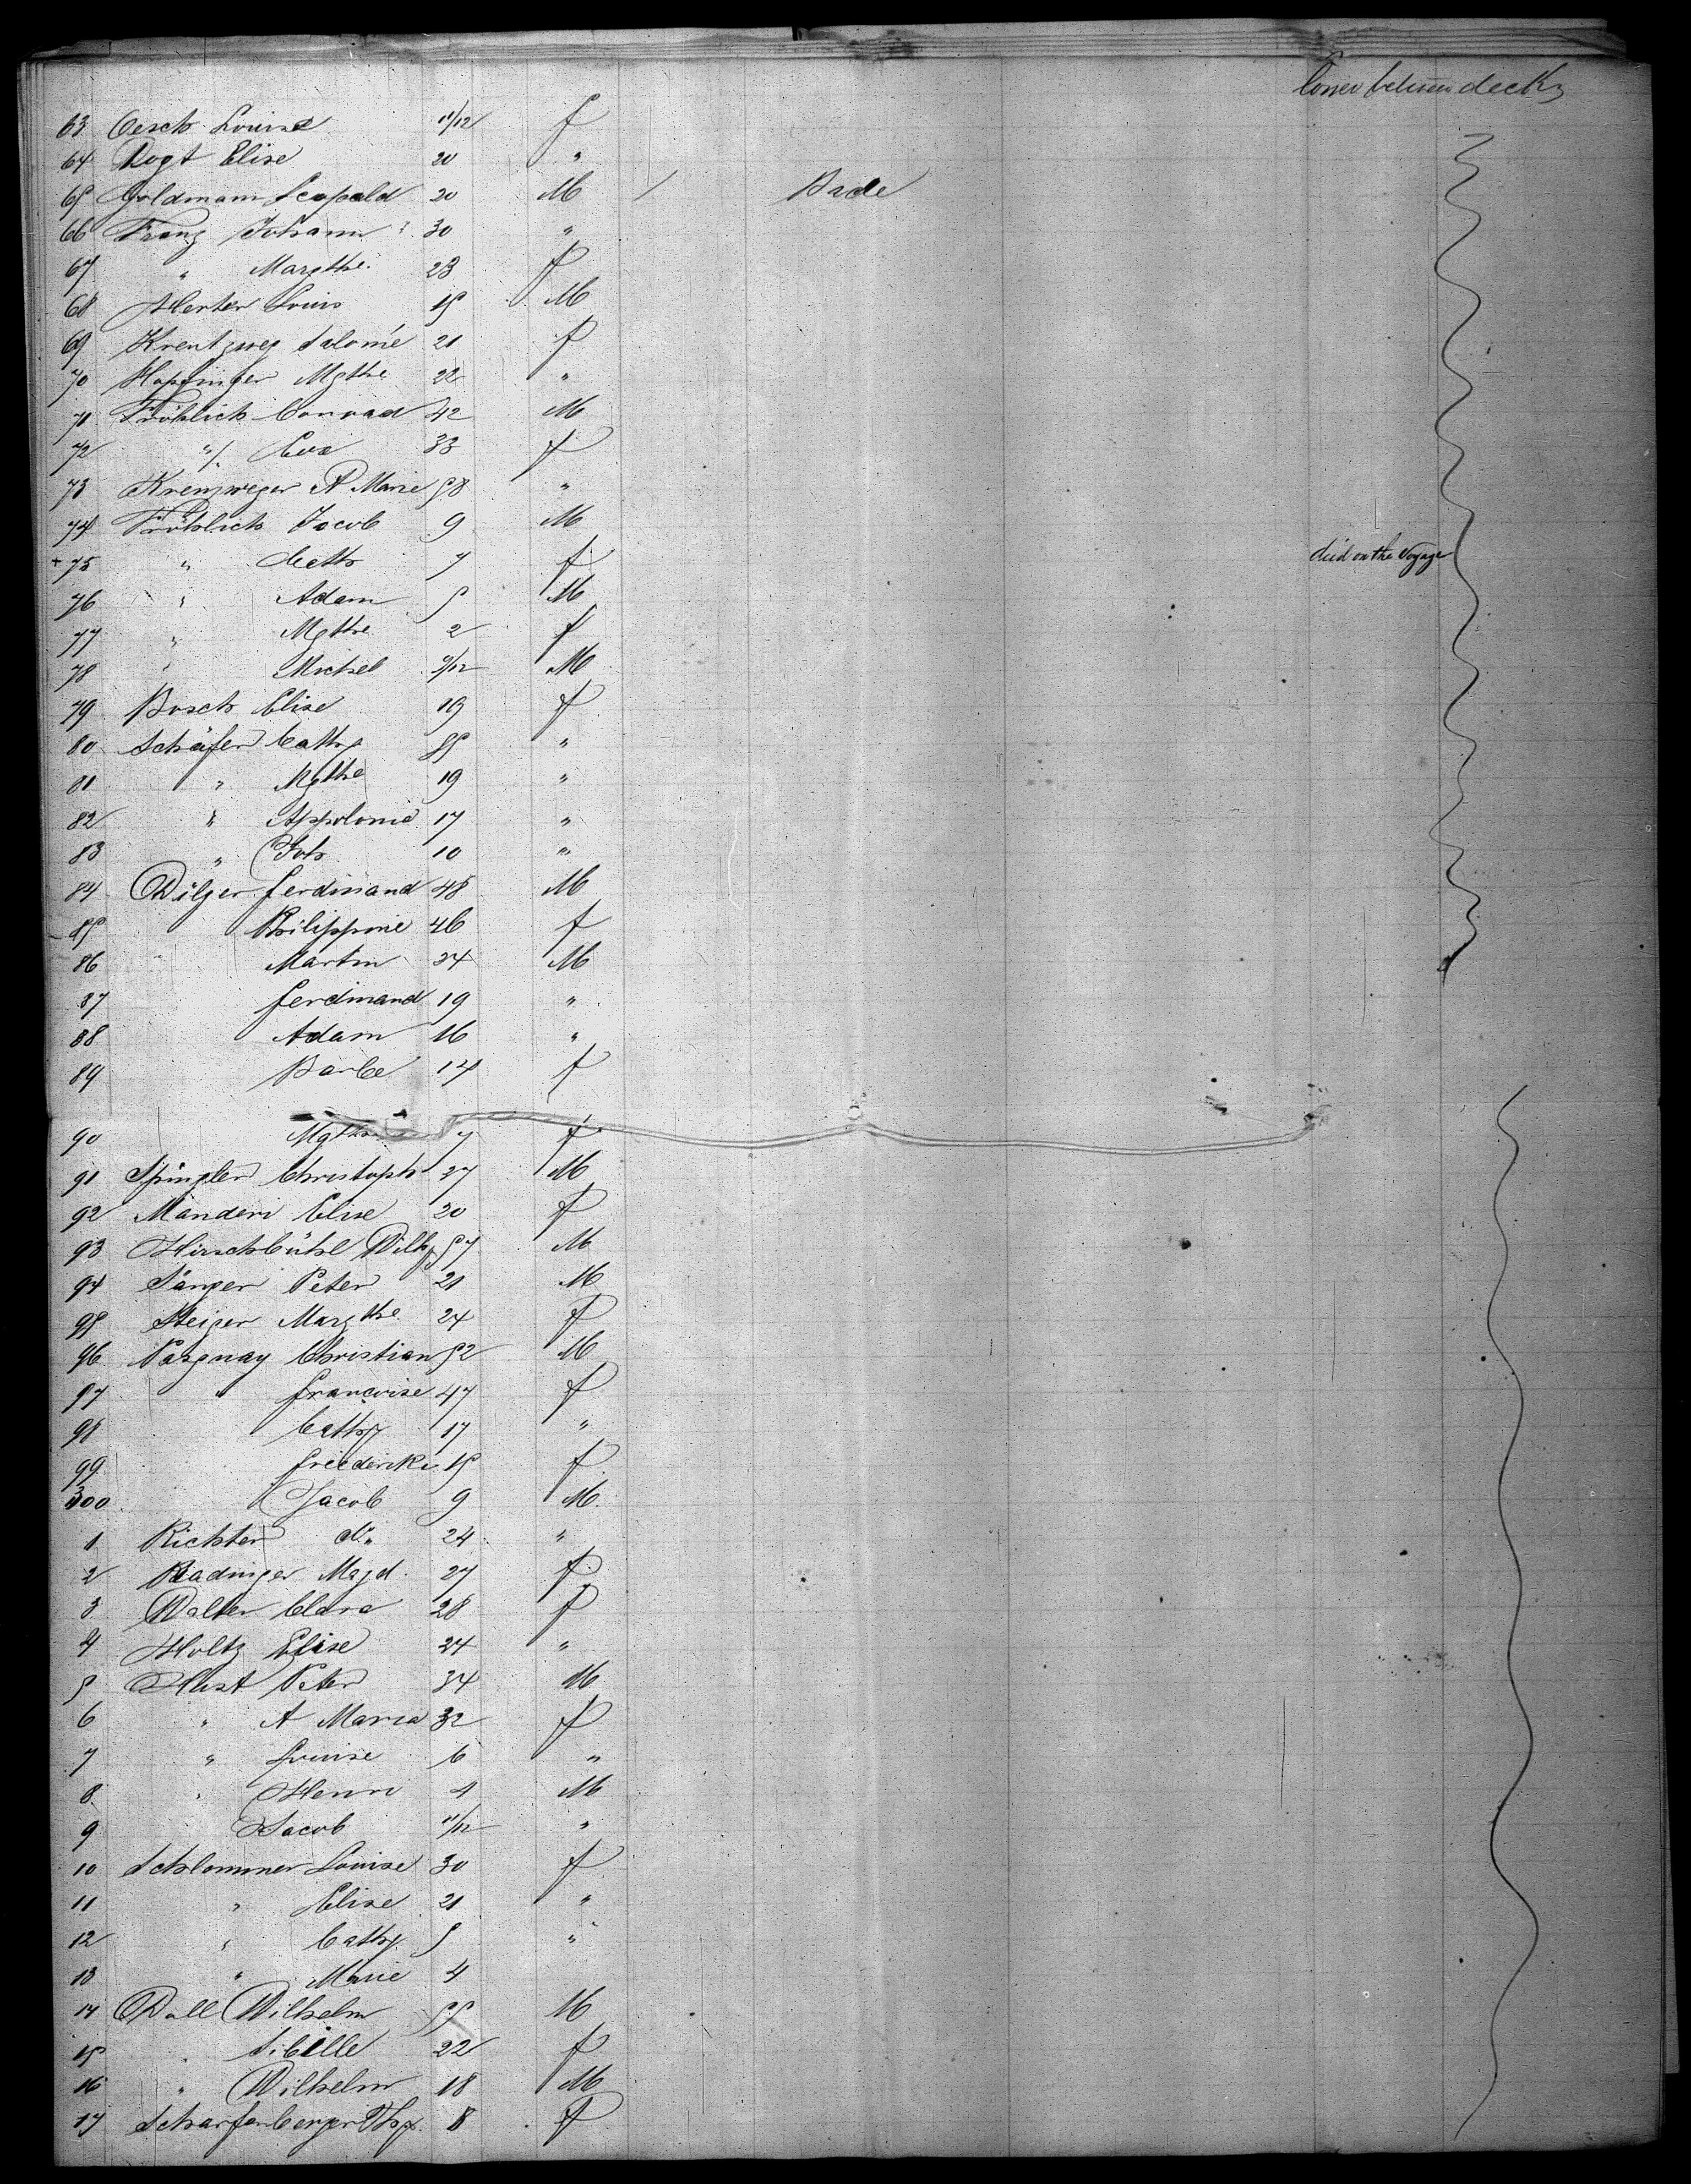 Lower between decks
63 Oesch Louise 11/12 f
64 Vogt Elise 20 "
65 Goldmann Leopold 20 M / Bade
66 Franz Johann 30 "
67 " Margthe 23 f
68 Herter Louis 15 M
69 Kreutzweg Salomé 21 f
70 Hopfinger Mgthe 22 "
71 Fröhlich Conrad 42 M
72 " Eva 33 f
73 Kreuzweger A. Marie 58 "
74 Fröhlich Jacob 9 M
+ 75 " 7 f died on the Voyage
76 " Adam 5 M
77 " Mgthe 2 f
78 " Michel 9/12 M
79 Bosch Elise 19 f
80 Schäfer Cath 55 "
81 " Mgthe 19 "
82 " Appolonie 17 "
83 " Joh 10 "
84 Wilger ferdinand 48 M
85 Philippine 46 f
86 Martin 24 M
87 ferdinand 19 "
88 Adam 16 "
89 Barbe 14 f
90 Mgthe 7 f
91 Spingler Christoph 27 M
92 Manderi Elise 20 f
93 Hirschbühl Wilh 57 M
94 Sänger Peter 21 M
95 Steiger Margthe 24 f
96 Pasquay Christian 52 M
97 " françoise 47 f
98 Cath 17 "
99 friederike 15 f
300 Jacob 9 M
1 Richter do 24 "
2 Radinger Magd. 27 f
3 Walter Clara 28 f
4 Holtz Elise 24 "
5 Hust Peter 34 M
6 " A Maria 32 f
7 " Louise 6 "
8 " Henri 4 M
9 Jacob 11/12 "
10 Schlemmer Louise 30 f
11 " Elise 21 "
12 " Cath 5 "
13 " Marie 4
14 Wall Wilhelm 55 M
15 " Sibille 22 f
16 " Wilhelm 18 M
17 Scharfenberger 8 f